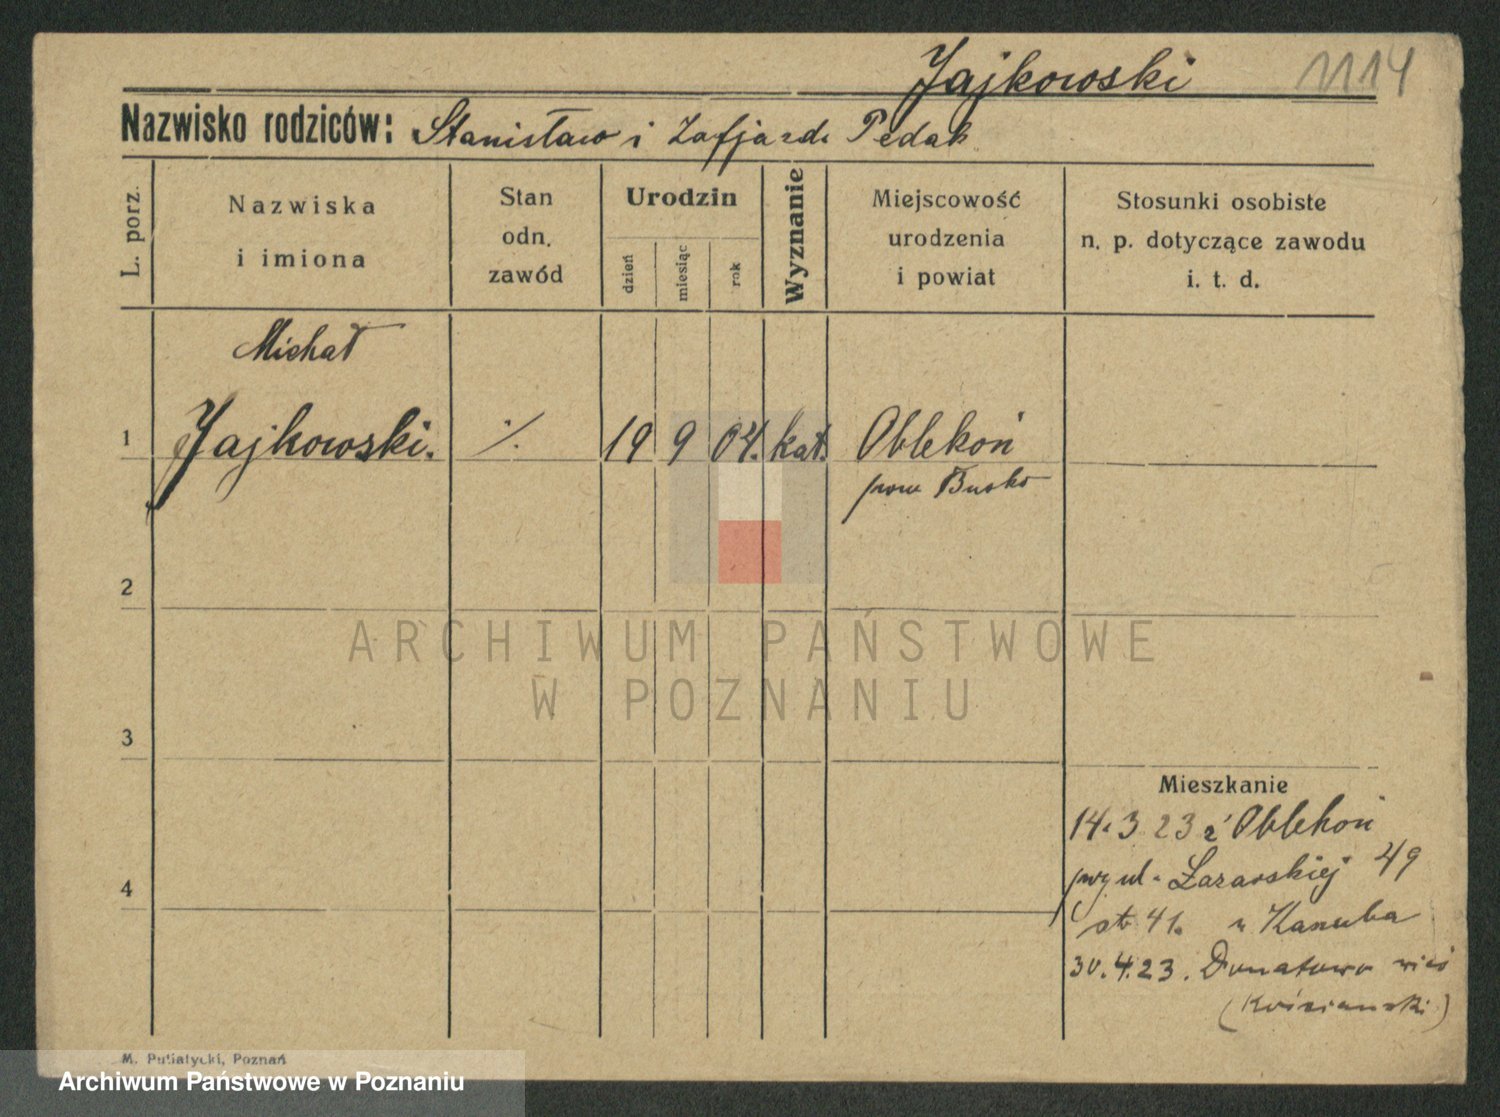 Jajkowski 1114
Nazwisko rodziców: Stanisław i Pedak
L. porz.
Nazwiska
i imiona
Stan
odn.
zawód
Urodzin
dzień
miesiąc
rok
Wyznanie
Miejscowość
urodzenia
i powiat
Stosunki osobiste
n. p. dotyczące zawodu
i. t. d.
Michał
1 Jajkowski. ./. 19 9 04. kat. Oblekoń
pow Busko
2
ARCHIWUM PAŃSTWOWE
W POZNANIU
3
Mieszkanie
14.3 23 z Oblekoń
przy ul. Łazarskiej 49
4
u Kasuba
30.4.23. Donatowo wieś
(Kościański)
M. Putiatycki, Poznań
Archiwum Państwowe w Poznaniu